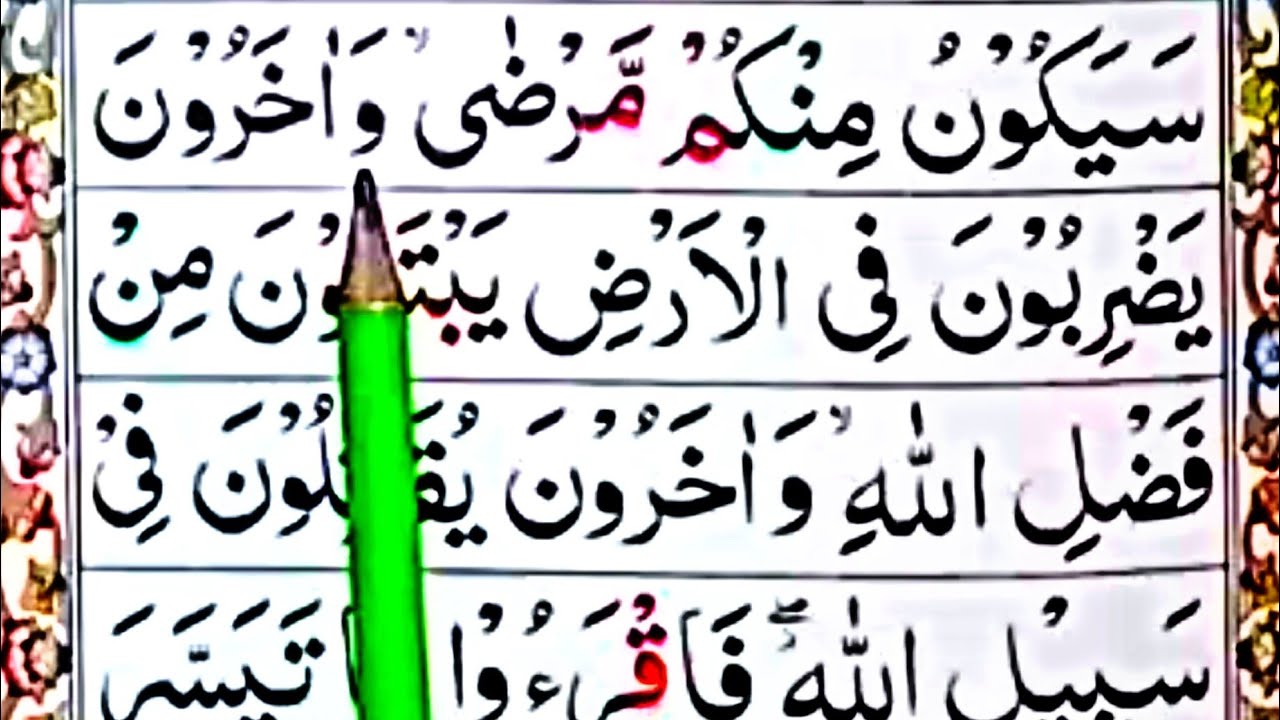 سَيَكُوْنُ مِنْكُمْ مَّرْضٰى ۙ وَاٰخَرُوْنَ
يَضْرِبُوْنَ فِى الْاَرْضِ مِنْ
فَضْلِ اللّٰهِ ۙ وَاٰخَرُوْنَ فِىْ
سَبِيْلِ اللّٰهِ ۖ فَاقْرَءُوْا تَيَسَّرَ